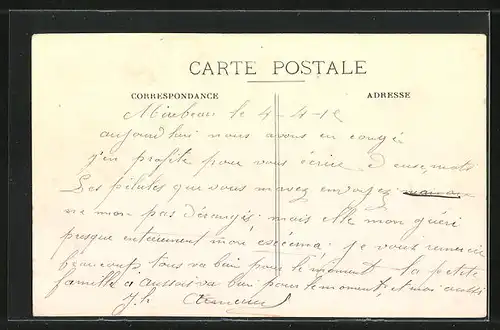 CARTE POSTALE
CORRESPONDANCE
ADRESSE
Mirebeau le 4-4-12
aujourd hui nous avons eu congé
j'en profite pour vous écrire deuse mots
Les pilules que vous mavez envoyez
ne mon pas dérangés mais elle mon guéri
presque entierement mon exzéma je vous remercie
beaucoup tous va bien pour le moment la petite
famille a aussi va bien pour le moment et moi aussi